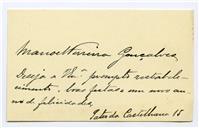 Manoel Ferreira Gonçalves
Deseja a V. Ex.ª prompto restabele-
cimento, boas festas e um novo an-
no de felicidades.
Pateo do Castelhano 15